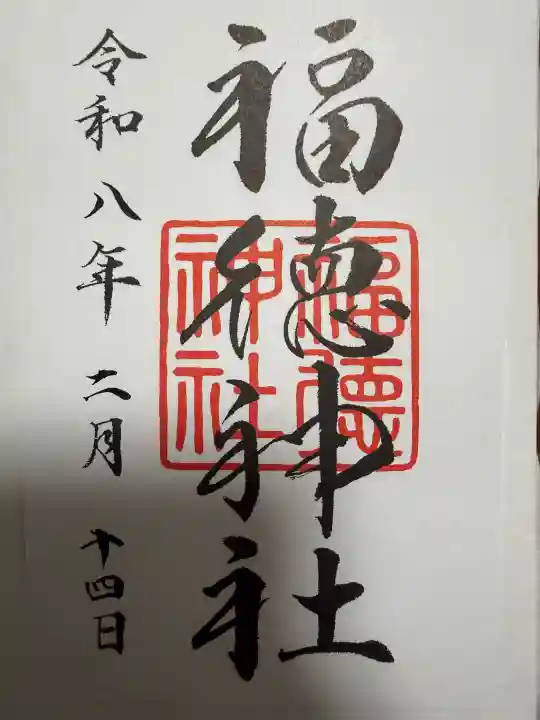 福徳神社
福徳
神社
令和八年二月十四日